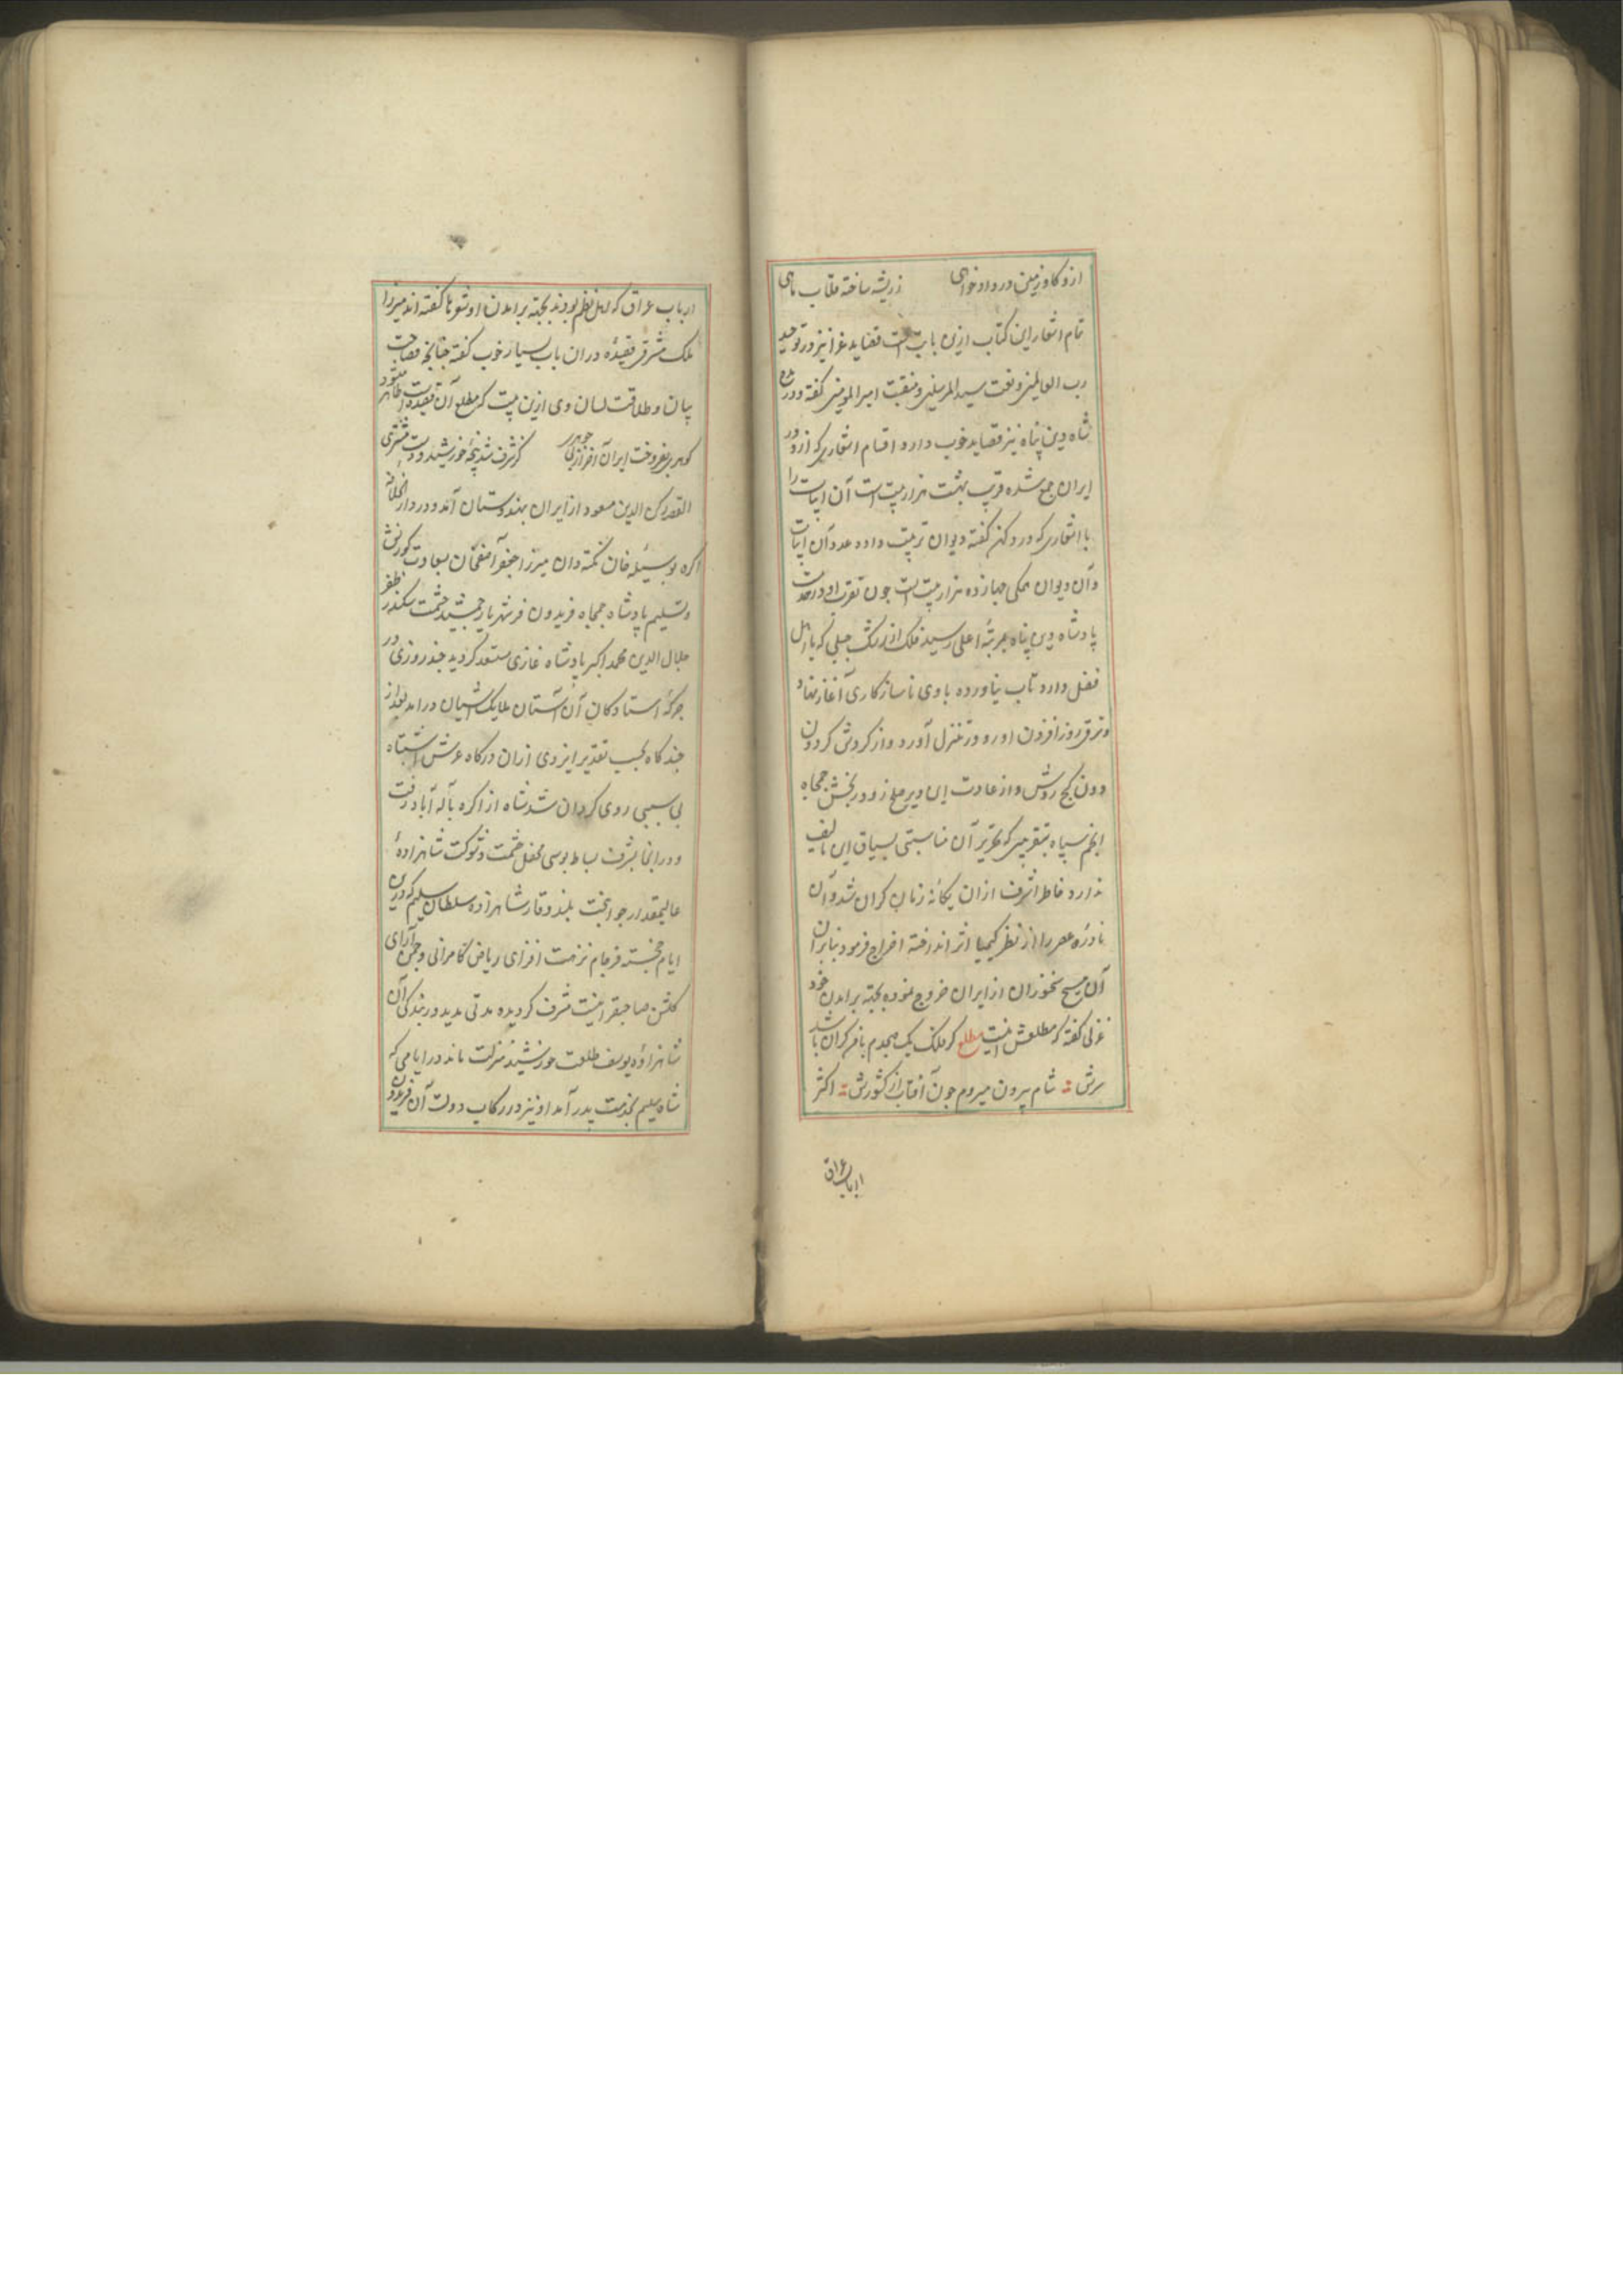 ازو گاو زمین در دادخواهی ز ریشه ساخته قلاب ماهی
تمام اشعار این کتاب ازین بابت است قصاید غرا نیز در توحید
رب العالمین و نعت سید المرسلین و منقبت امیر المومنین گفته و در مدح
شاه دین پناه نیز قصاید خوب دارد اقسام اشعاری که ازو در
ایران جمع شده قریب بهشت هزار بیت است آن ابیات را
با اشعاری که در دکن گفته دیوان ترتیب داده عدد آن ابیات
و آن دیوان همکی چهارده هزار بیت است چون تقرب او در خدمت
پادشاه دین پناه بمرتبهٔ اعلی رسید فلک از رشک جبلی که با اهل
فضل دارد تاب نیاورده با وی ناسازکاری آغاز نهاد
و ترقی روز افزون او رو در تنزل آورد و از کردش کردون
دون کج روش و از عادت این دیر صلح زود رنجش جمجاه
انجم سپاه بتقریبی که تحریر آن مناسبتی بسیاق این تالیف
ندارد خاطر اشرف ازان یکانهٔ زمان کران شد و آن
نادرهٔ عصر را از نظر کیمیا اثر انداخته اخراج فرمود بنابران
آن مسیح سخنوران از ایران خروج نموده بجهة برآمدن خود
غزلی گفته که مطلعش اینست مطلع کر فلک یک صبحدم با من کران باشد
سرش شام بیرون میروم چون آفتاب از کشورش اکثر
ارباب عراق
ارباب عراق که اهل نظم بودند بجهة برآمدن او شعرها گفته اند میرزا
ملک مشرقی قصیده دران باب بسیار خوب گفته چنانچه فصاحت
بیان و طلاقت لسان وی ازین بیت که مطلع آن قصیده است ظاهر میشود
کوهری بفروخت ایران آخر از بی جوهری کز شرف شد پنجهٔ خورشید دست مشتری
القصه رکن الدین مسعود از ایران بهندوستان آمد و در دار الخلافه
اکره بوسیلهٔ خان نکته دان میرزا جعفر آصفخان بسعادت کورنش
و تسلیم پادشاه جمجاه فریدون فر شهریار جمشید حشمت سکندر ظفر
جلال الدین محمد اکبر پادشاه غازی مستعد کردید چند روزی در
جرکهٔ استادکان آن آستان ملایک آشیان درآمد بعد از
چند کاه بحسب تقدیر ایزدی ازان درکاه عرش اشتباه
بی سببی روی کردان شد نشاه از اکره بآله آباد رفت
و درانجا بشرف بساط بوسی محفل حشمت و شوکت شاهزادهٔ
عالیمقدار جوانبخت بلند وقار شاهزاده سلطان سلیم که درین
ایام خجسته فرجام نزهت افزای ریاض کامرانی و چمن آرای
کلشن صاحبقرانیست مشرف کردیده مدتی مدید در بندکی آن
شاهزادهٔ یوسف طلعت خورشید منزلت ماند در ایامی که
شاه سلیم بخدمت پدر آمد او نیز در رکاب دولت آن فریدون